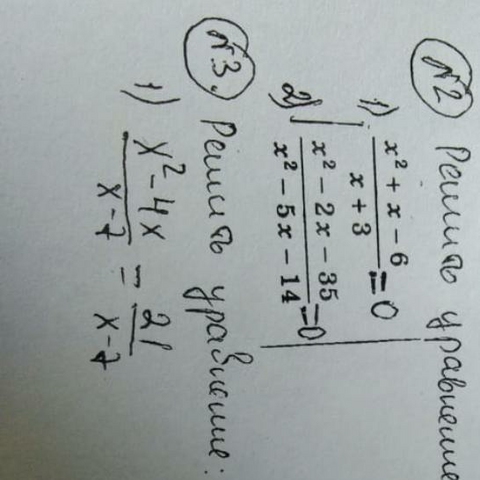 №2 Решить уравнение
1) x² + x − 6 / x + 3 = 0
2) x² − 2x − 35 / x² − 5x − 14 = 0
№3. Решить уравнение:
1) x² − 4x / x − 7 = 21 / x − 7